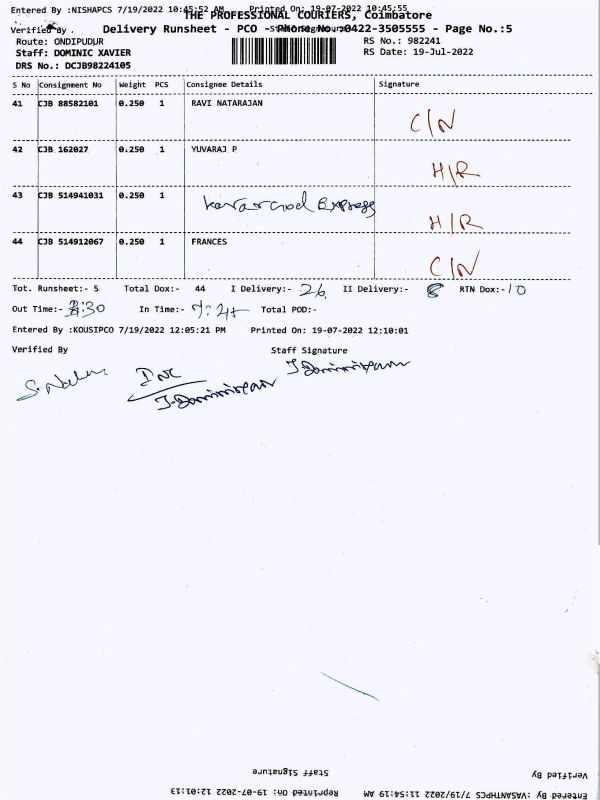 Entered By :NISHAPCS 7/19/2022 10:45:52 AM Printed On: 19-07-2022 10:45:55
THE PROFESSIONAL COURIERS, Coimbatore
Verified By
Delivery Runsheet - PCO - Phone No.:0422-3505555 - Page No.:5
Route: ONDIPUDUR
RS No.: 982241
Staff: DOMINIC XAVIER
RS Date: 19-Jul-2022
DRS No.: DCJB98224105
S No Consignment No Weight PCS Consignee Details Signature
41 CJB 88582101 0.250 1 RAVI NATARAJAN C/N
42 CJB 162027 0.250 1 YUVARAJ P H/R
43 CJB 514941031 0.250 1 Express H/R
44 CJB 514912067 0.250 1 FRANCES C/N
Tot. Runsheet:- 5 Total Dox:- 44 I Delivery:- 26 II Delivery:- 8 RTN Dox:- 10
Out Time:- In Time:- Total POD:-
Entered By :KOUSIPCO 7/19/2022 12:05:21 PM Printed On: 19-07-2022 12:10:01
Verified By Staff Signature
Staff Signature Verified By
Entered By :VASANTHPCS 7/19/2022 11:54:19 AM Reprinted On: 19-07-2022 12:01:13